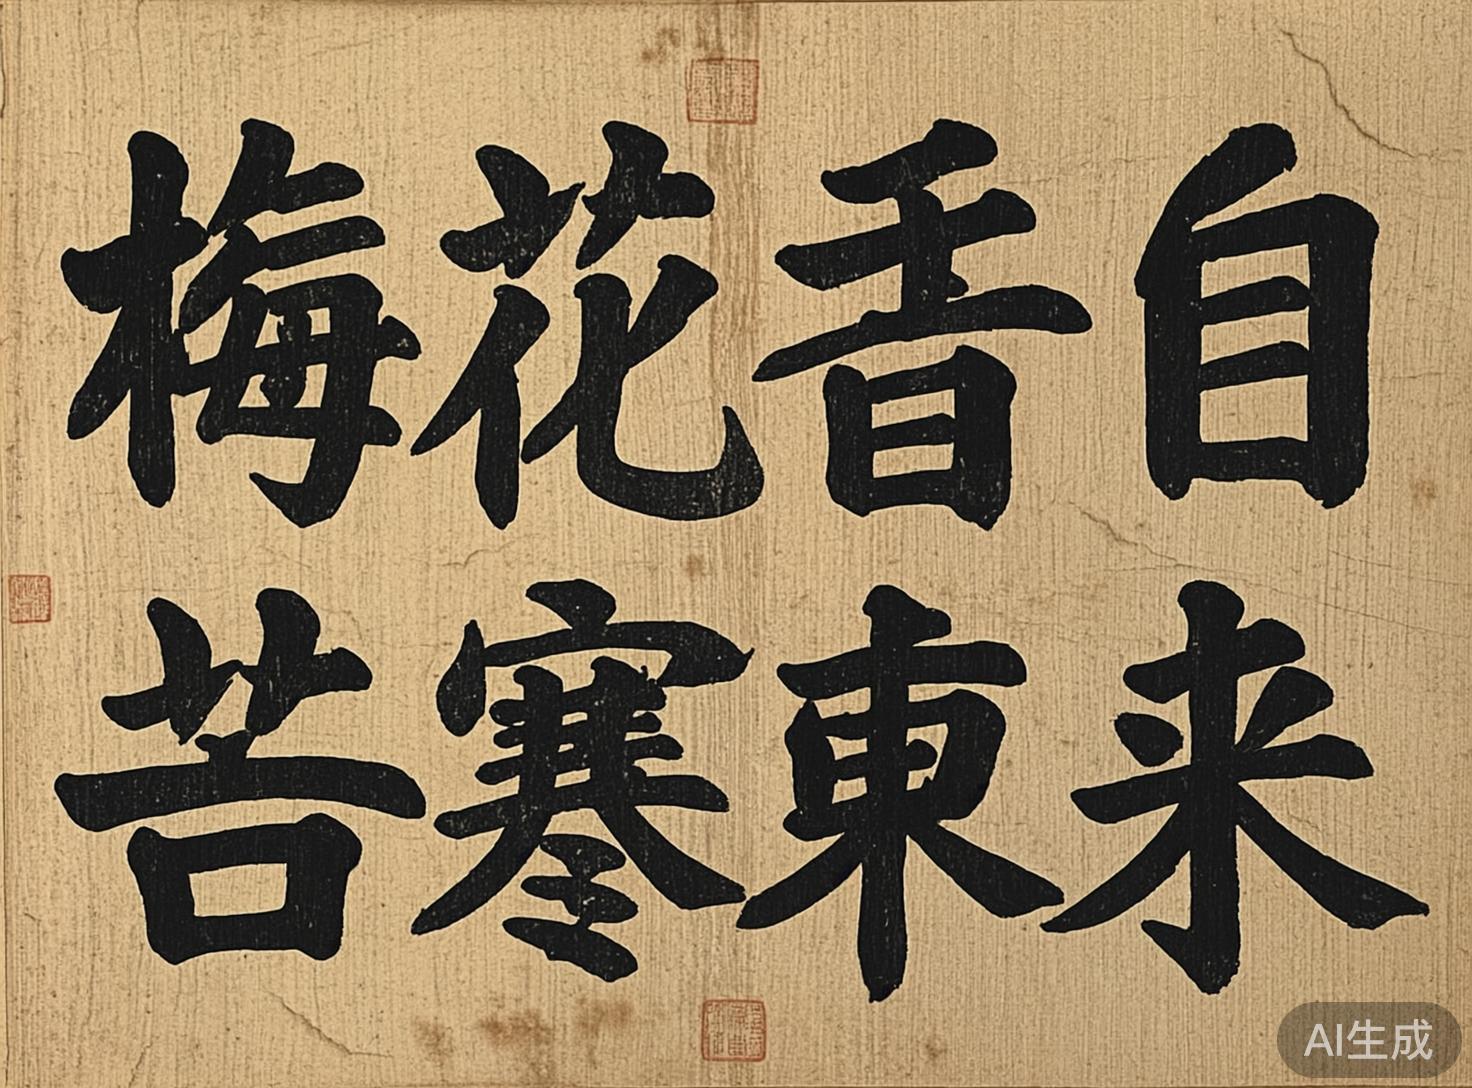 梅花自
苦寒東来
AI生成